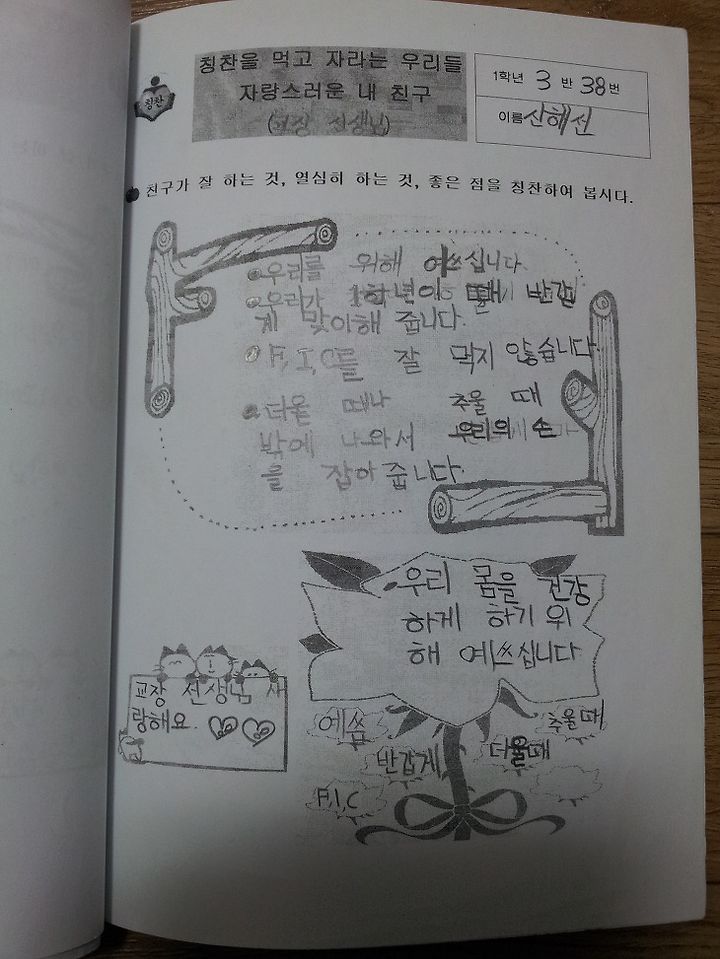 칭찬을 먹고 자라는 우리들
자랑스러운 내 친구
(교장 선생님)
칭찬
1학년 3 반 38번
이름 산해선
친구가 잘 하는 것, 열심히 하는 것, 좋은 점을 칭찬하여 봅시다.
우리를 위해 애쓰십니다.
우리가 1학년이 때 반갑
게 맞이해 줍니다.
F, I, C를 잘 먹지 않습니다.
더울 때나 추울 때
밖에 나와서 우리의 손
을 잡아 줍니다.
우리 몸을 건강
하게 하기 위
해 예쓰십니다
교장 선생님 사
랑해요.
예씀
추울때
반갑게
더울때
F, I, C